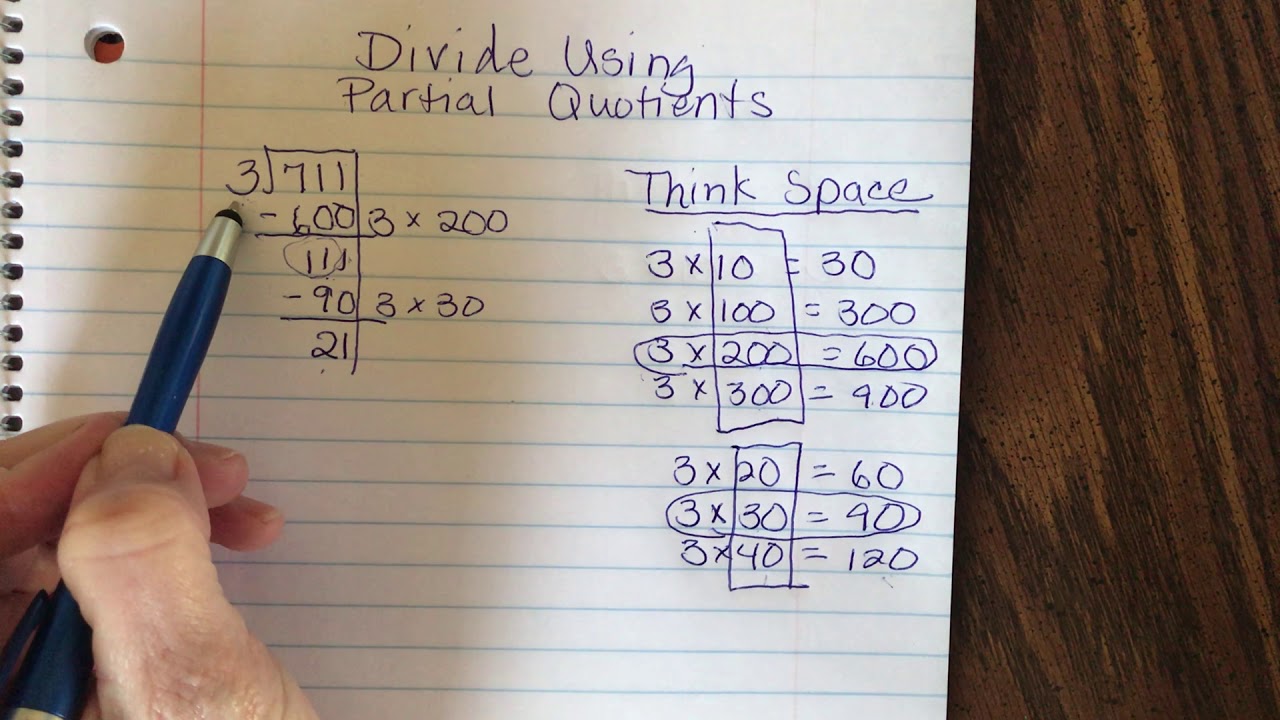 Divide Using
Partial Quotients
3)711
-600 3 × 200
111
-90 3 × 30
21
Think Space
3 × 10 = 30
3 × 100 = 300
3 × 200 = 600
3 × 300 = 900
3 × 20 = 60
3 × 30 = 90
3 × 40 = 120